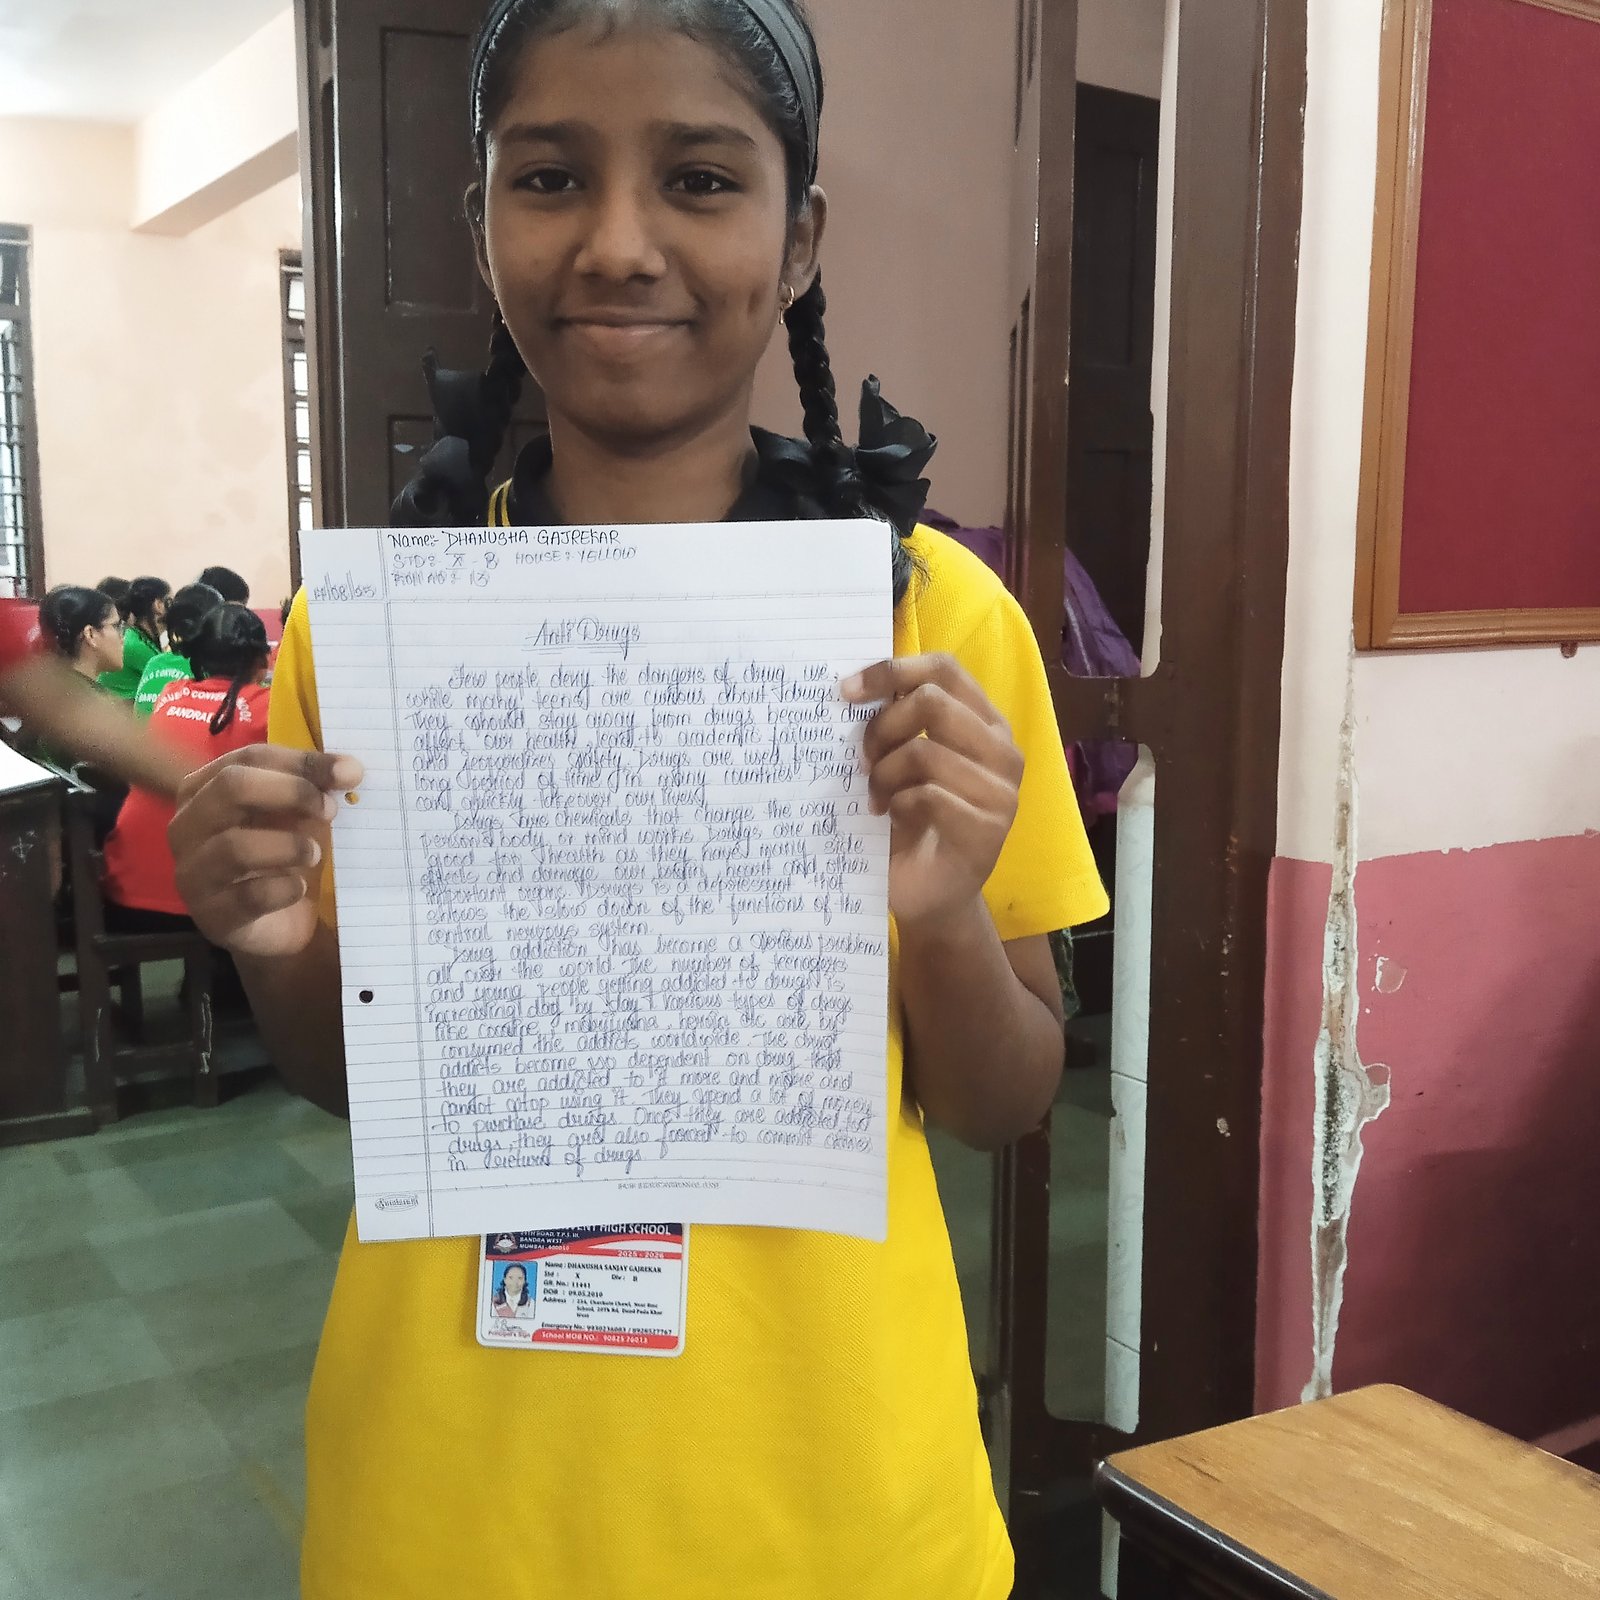 Name:- DHANUSHA GAJREKAR
STD:- X - B HOUSE: YELLOW
Roll No:- 13
Anti Drugs
Few people deny the dangers of drug use,
while many teens are curious about drugs.
They should stay away from drugs because drug
affect our health, lead to academic failure,
and jeopardizes safety. Drugs are used from a
long period of time in many countries. Drugs
can quickly takeover our lives.
Drugs are chemicals that change the way a
person's body or mind works. Drugs are not
good for health as they have many side
effects and damage our brain, heart and other
important organs. Drugs is a depressant that
shows the slow down of the functions of the
central nervous system.
Drug addiction has become a serious problems
all over the world. The number of teenagers
and young people getting addicted to drugs is
increasing day by day. Various types of drugs
like cocaine, marijuana, heroin etc are by
consumed the addicts worldwide. The drug
addicts become so dependent on drug that
they are addicted to it more and more and
cannot stop using it. They spend a lot of money
to purchase drugs. Once they are addicted to
drugs, they are also forced to commit crimes
in of drugs.
Sundaram
HIGH SCHOOL
BANDRA WEST,
MUMBAI - 400050
2025 - 2026
Name : DHANUSHA SANJAY GAJREKAR
Std : X Div : B
Principal's Sign
BANDRA